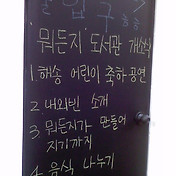 입구
뭐든지 도서관 개소식
1. 해송 어린이 축하 공연
2 내외빈 소개
3 뭐든지가 만들어
지기까지
4. 음식 나누기